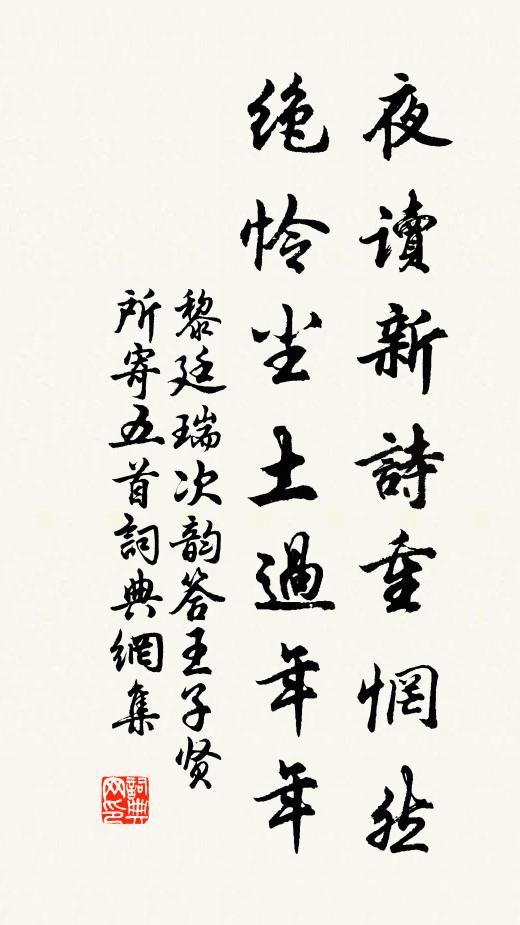 夜讀新詩重惘然
绝怜尘土過年年
黎廷瑞次韵答王子贤
所寄五首詞典網集
詞典网印